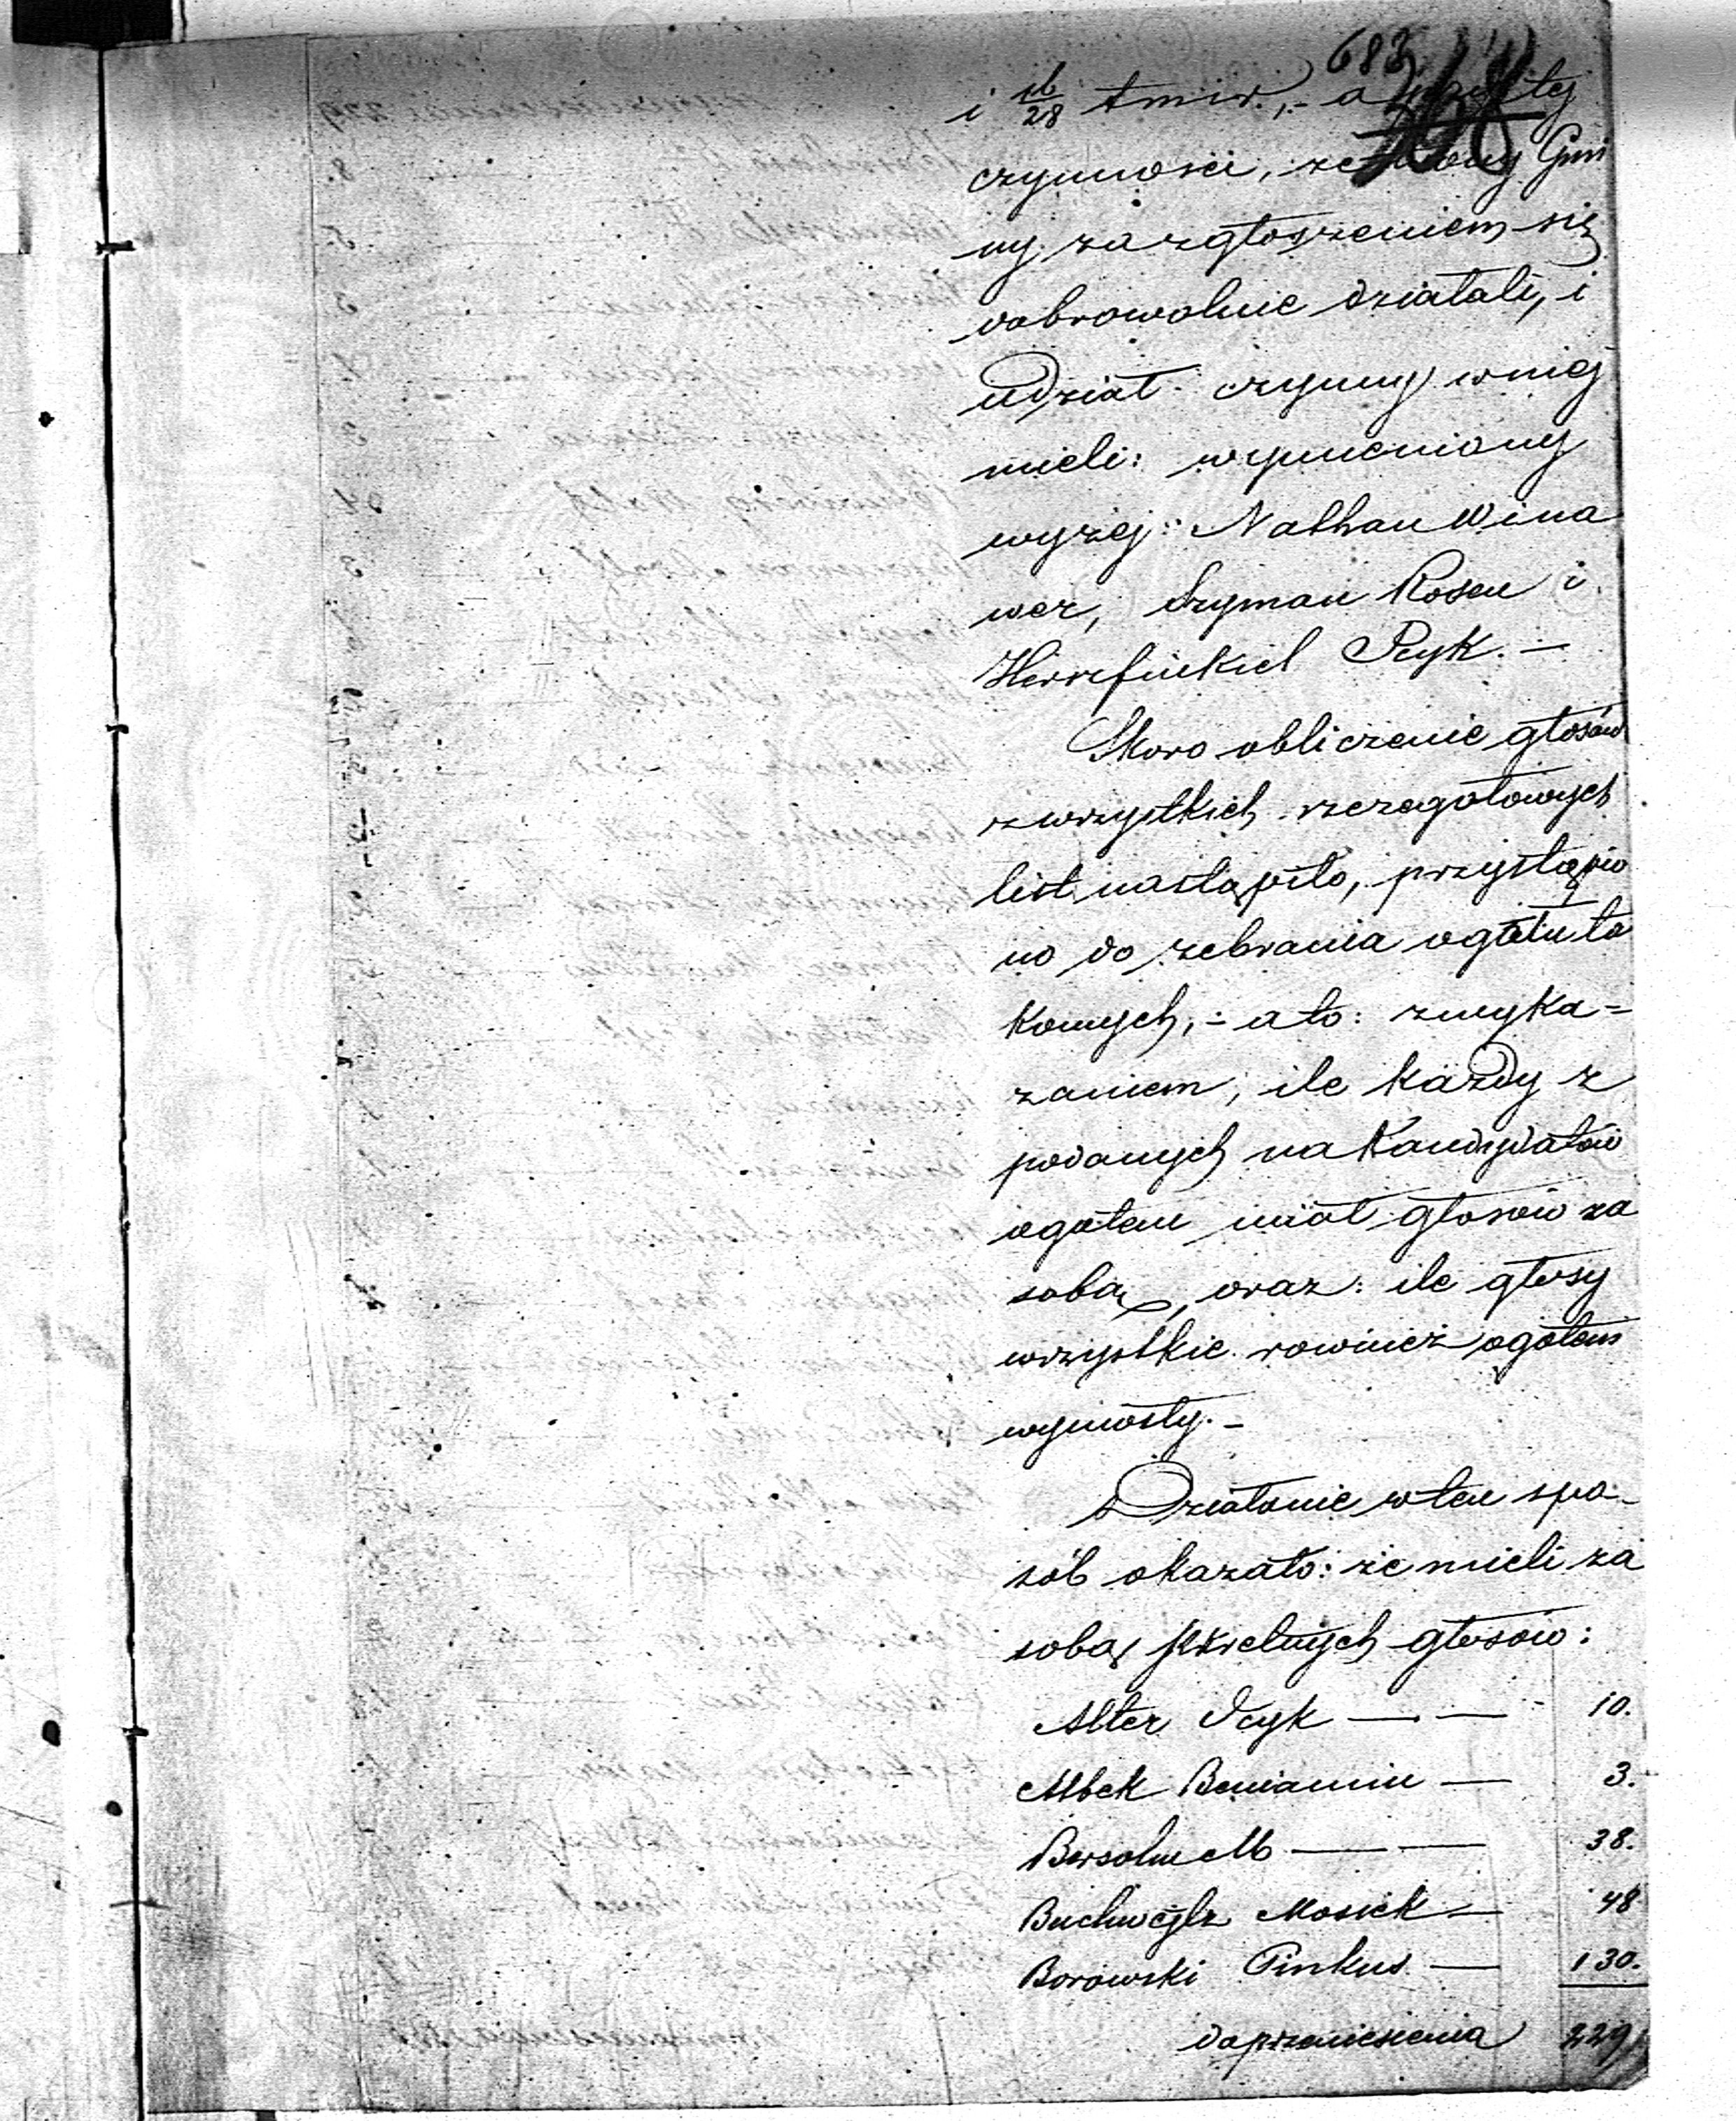 683
i 16/28 t m i r.,- a przy tej
czynności, ze strony Gmi
ny za zgłoszeniem się
dobrowolnie działali, i
udział czynny w niéj
mieli: wymieniony
wyżej: Nathan Wina
wer, Szyman Rosen i
Herszfinkiel Icyk. —
Skoro obliczenie głosów
z wszystkich szczegółowych
list nastąpiło, przystąpio
no do zebrania ogółu ta
kowych,- a to: z wyka=
zaniem, ile każdy z
podanych na Kandydatów
ogółem miał głosów za
sobą, oraz: ile głosy
wszystkie również ogółem
wynosły.-
Działanie w ten spo-
sób okazało: że mieli za
sobą głosów:
Alter Icyk — — 10.
Albek Beniamin — 3.
Bersohn M — — 38.
Buchweylz Mosiek — 48
Borowski Pinkus — 130.
do przeniesienia 229